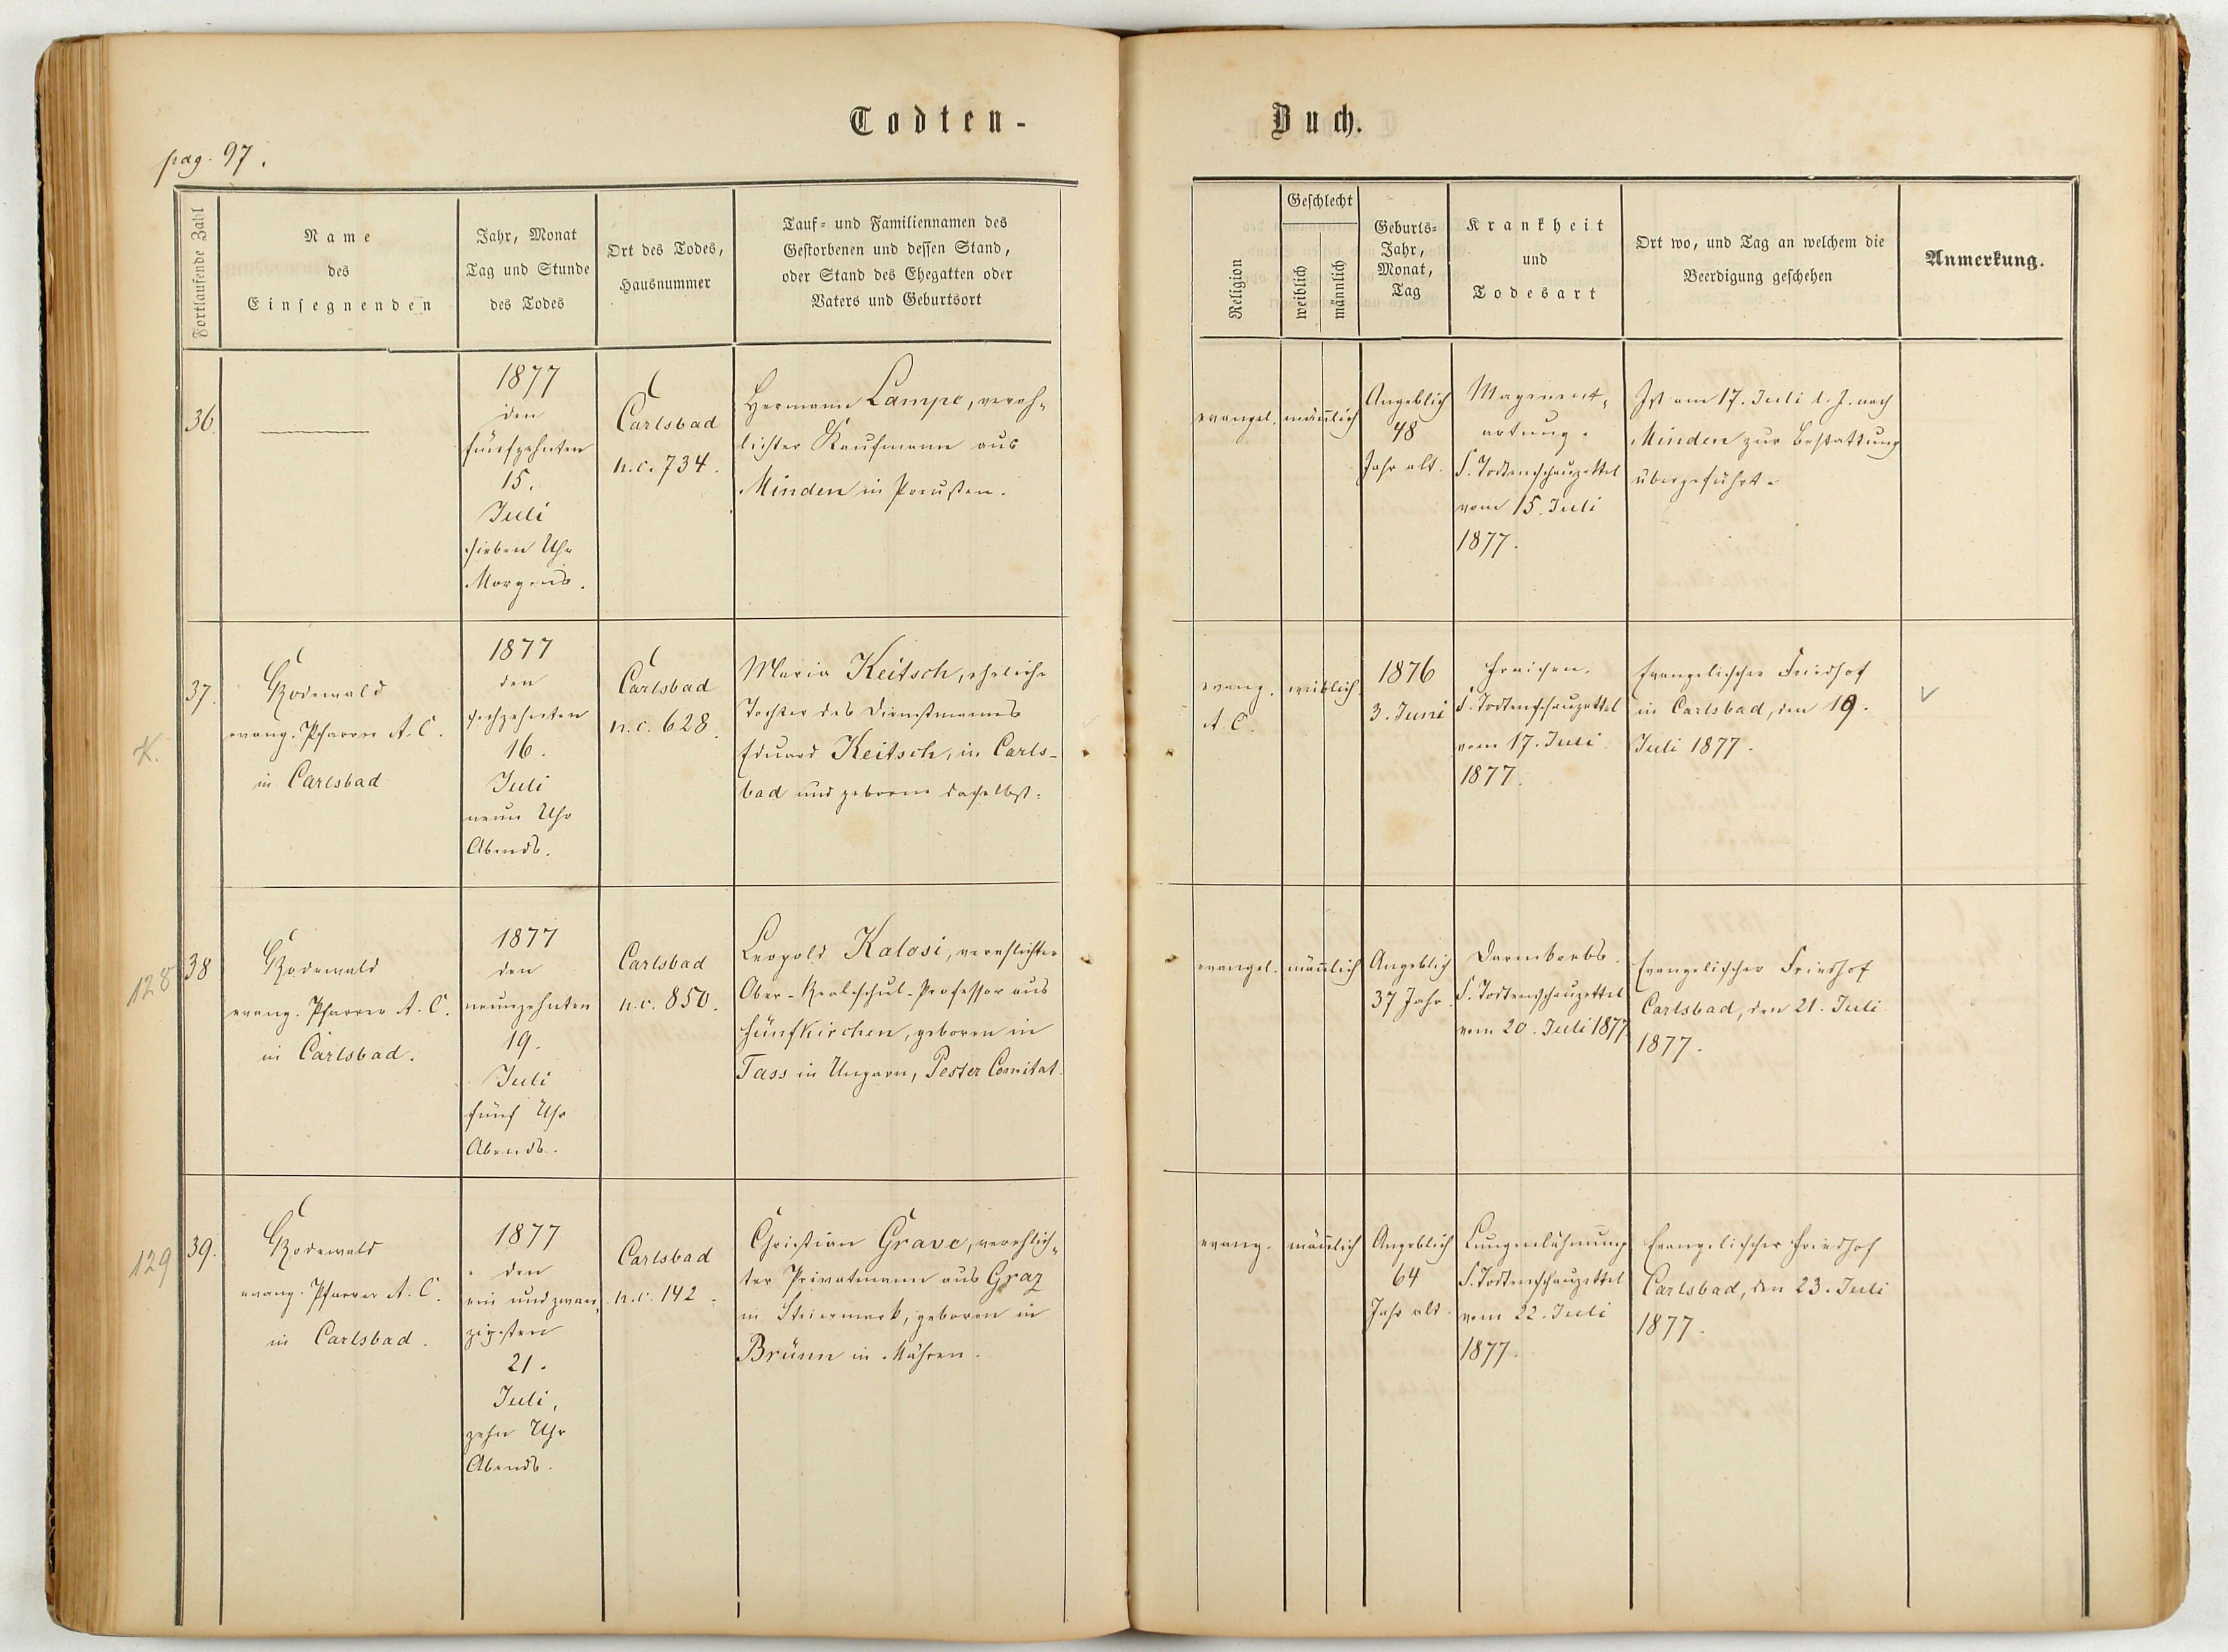 Todten-
Buch.
pag. 97.
Fortlaufende Zahl
Name
des
Einsegnenden
Jahr, Monat
Tag und Stunde
des Todes
Ort des Todes,
Hausnummer
Tauf- und Familiennamen des
Gestorbenen und dessen Stand,
oder Stand des Ehegatten oder
Vaters und Geburtsort
Religion
Geschlecht
weiblich
männlich
Geburts-
Jahr,
Monat,
Tag
Krankheit
und
Todesart
Ort wo, und Tag an welchem die
Beerdigung geschehen
Anmerkung.
36.
1877
den
fünfzehnten
15.
Juli
sieben Uhr
Morgens.
Carlsbad
n.c. 734.
Hermann Lampe, vereh-
lichter Kaufmann aus
Minden in Preußen.
evangel.
männlich
Angeblich
48
Jahr alt.
Magenent-
artung.
S. Todtenschauzettel
vom 15. Juli
1877.
Ist am 17. Juli d. J. nach
Minden zur Bestattung
übergeführt.
K.
37.
Rodewald
evang. Pfarrer A. C.
in Carlsbad
1877
den
sechzehnten
16.
Juli
neun Uhr
Abends.
Carlsbad
n.c. 628.
Maria Keitsch, eheliche
Tochter des Dienstmannes
Eduard Keitsch, in Carls-
bad und geboren daselbst.
evang.
A. C.
weiblich.
1876
3. Juni
Fraisen.
S. Todtenschauzettel
vom 17. Juli
1877.
Evangelischer Friedhof
in Carlsbad, den 19.
Juli 1877.
128
38
Rodewald
evang. Pfarrer A. C.
in Carlsbad.
1877
den
neunzehnten
19.
Juli
fünf Uhr
Abends.
Carlsbad
n.c. 850.
Leopold Kalosi, verehlichter
Ober-Realschul-Professor aus
Fünfkirchen, geboren in
Tass in Ungarn, Pester Comitat.
evangel.
männlich
Angeblich
37 Jahr.
Darmkrebs.
S. Todtenschauzettel
vom 20. Juli 1877.
Evangelischer Friedhof
Carlsbad, den 21. Juli
1877.
129
39.
Rodewald
evang. Pfarrer A. C.
in Carlsbad.
1877
den
ein und zwan-
zigsten
21.
Juli,
zehn Uhr
Abends.
Carlsbad
n.c. 142.
Christian Grave, verehlich-
ter Privatmann aus Graz
in Steiermark, geboren in
Brünn in Mähren.
evang.
männlich
Angeblich
64
Jahr alt.
Lungenlähmung
S. Todtenschauzettel
vom 22. Juli
1877.
Evangelischer Friedhof
Carlsbad, den 23. Juli
1877.